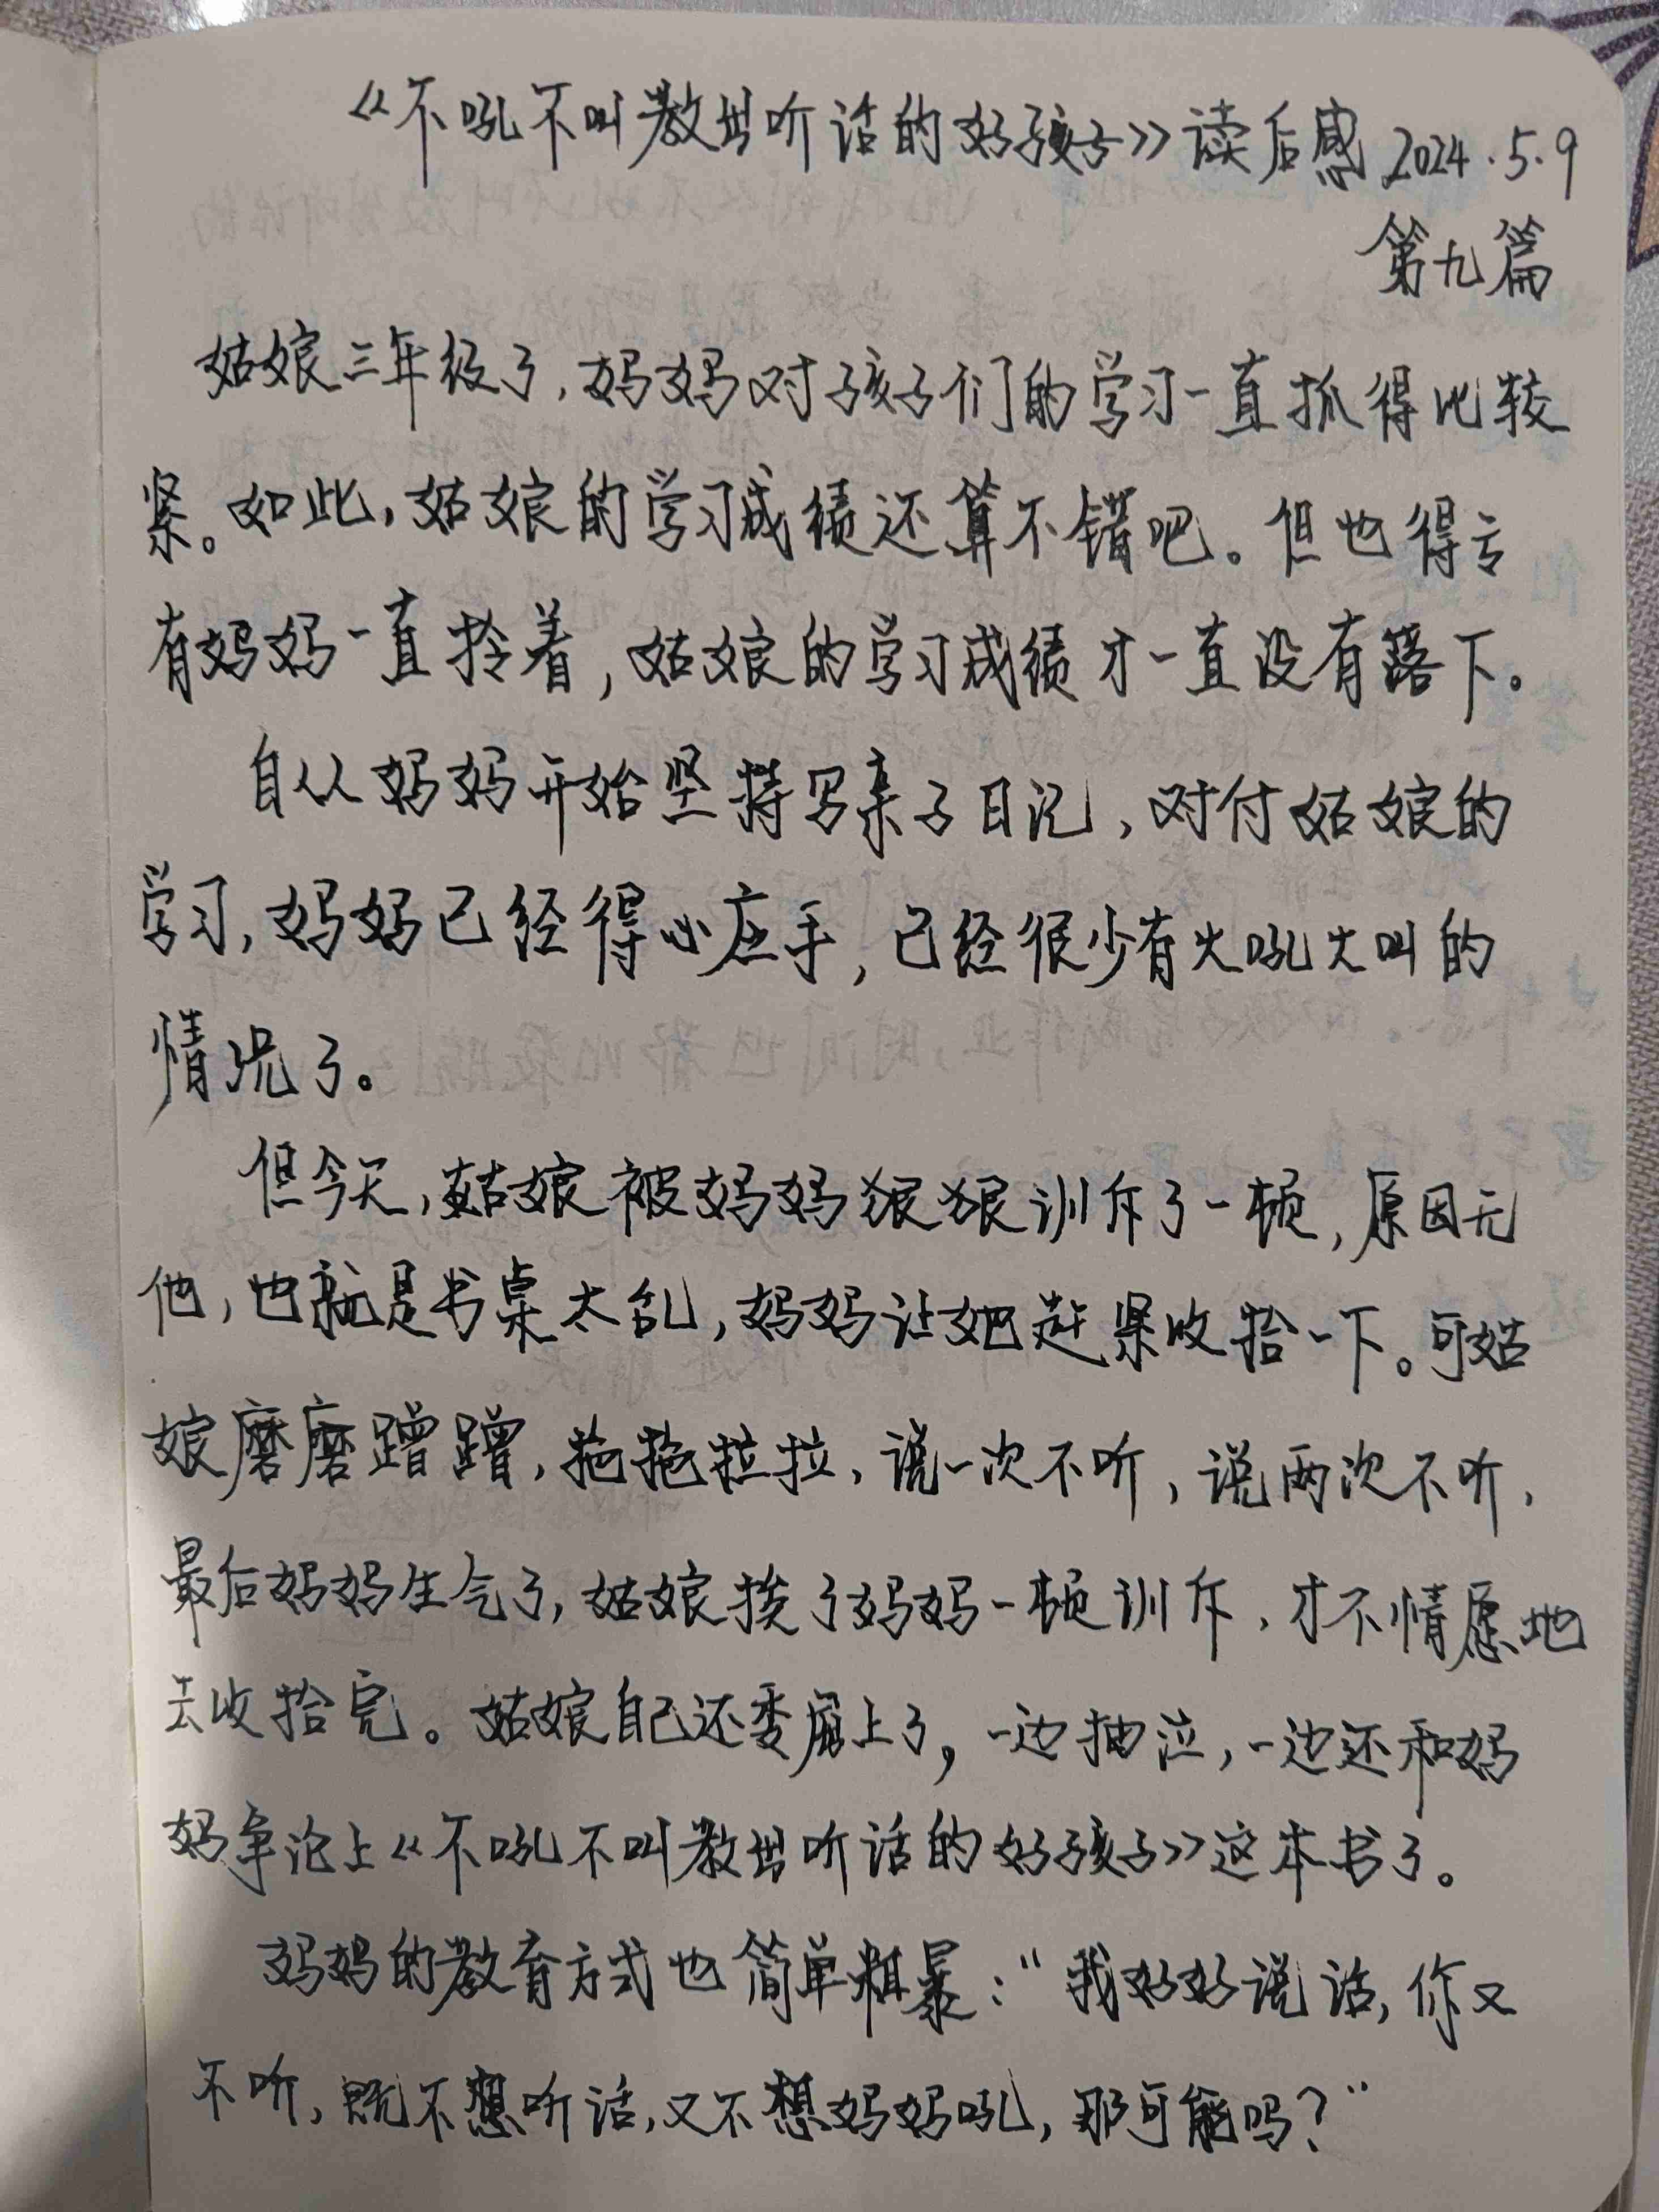 《不吼不叫教出听话的好孩子》读后感 2024.5.9
第九篇
姑娘三年级了,妈妈对孩子们的学习一直抓得比较
紧。如此,姑娘的学习成绩还算不错吧。但也得亏
有妈妈一直拎着,姑娘的学习成绩才一直没有落下。
自从妈妈开始坚持写亲子日记,对付姑娘的
学习,妈妈已经得心应手,已经很少有大吼大叫的
情况了。
但今天,姑娘被妈妈狠狠训斥了一顿,原因无
他,也就是书桌太乱,妈妈让她赶紧收拾一下。可姑
娘磨磨蹭蹭,拖拖拉拉,说一次不听,说两次不听,
最后妈妈生气了,姑娘挨了妈妈一顿训斥,才不情愿地
去收拾完。姑娘自己还委屈上了,一边抽泣,一边还和妈
妈争论上《不吼不叫教出听话的好孩子》这本书了。
妈妈的教育方式也简单粗暴:“我好好说话,你又
不听,既不想听话,又不想妈妈吼,那可能吗?”